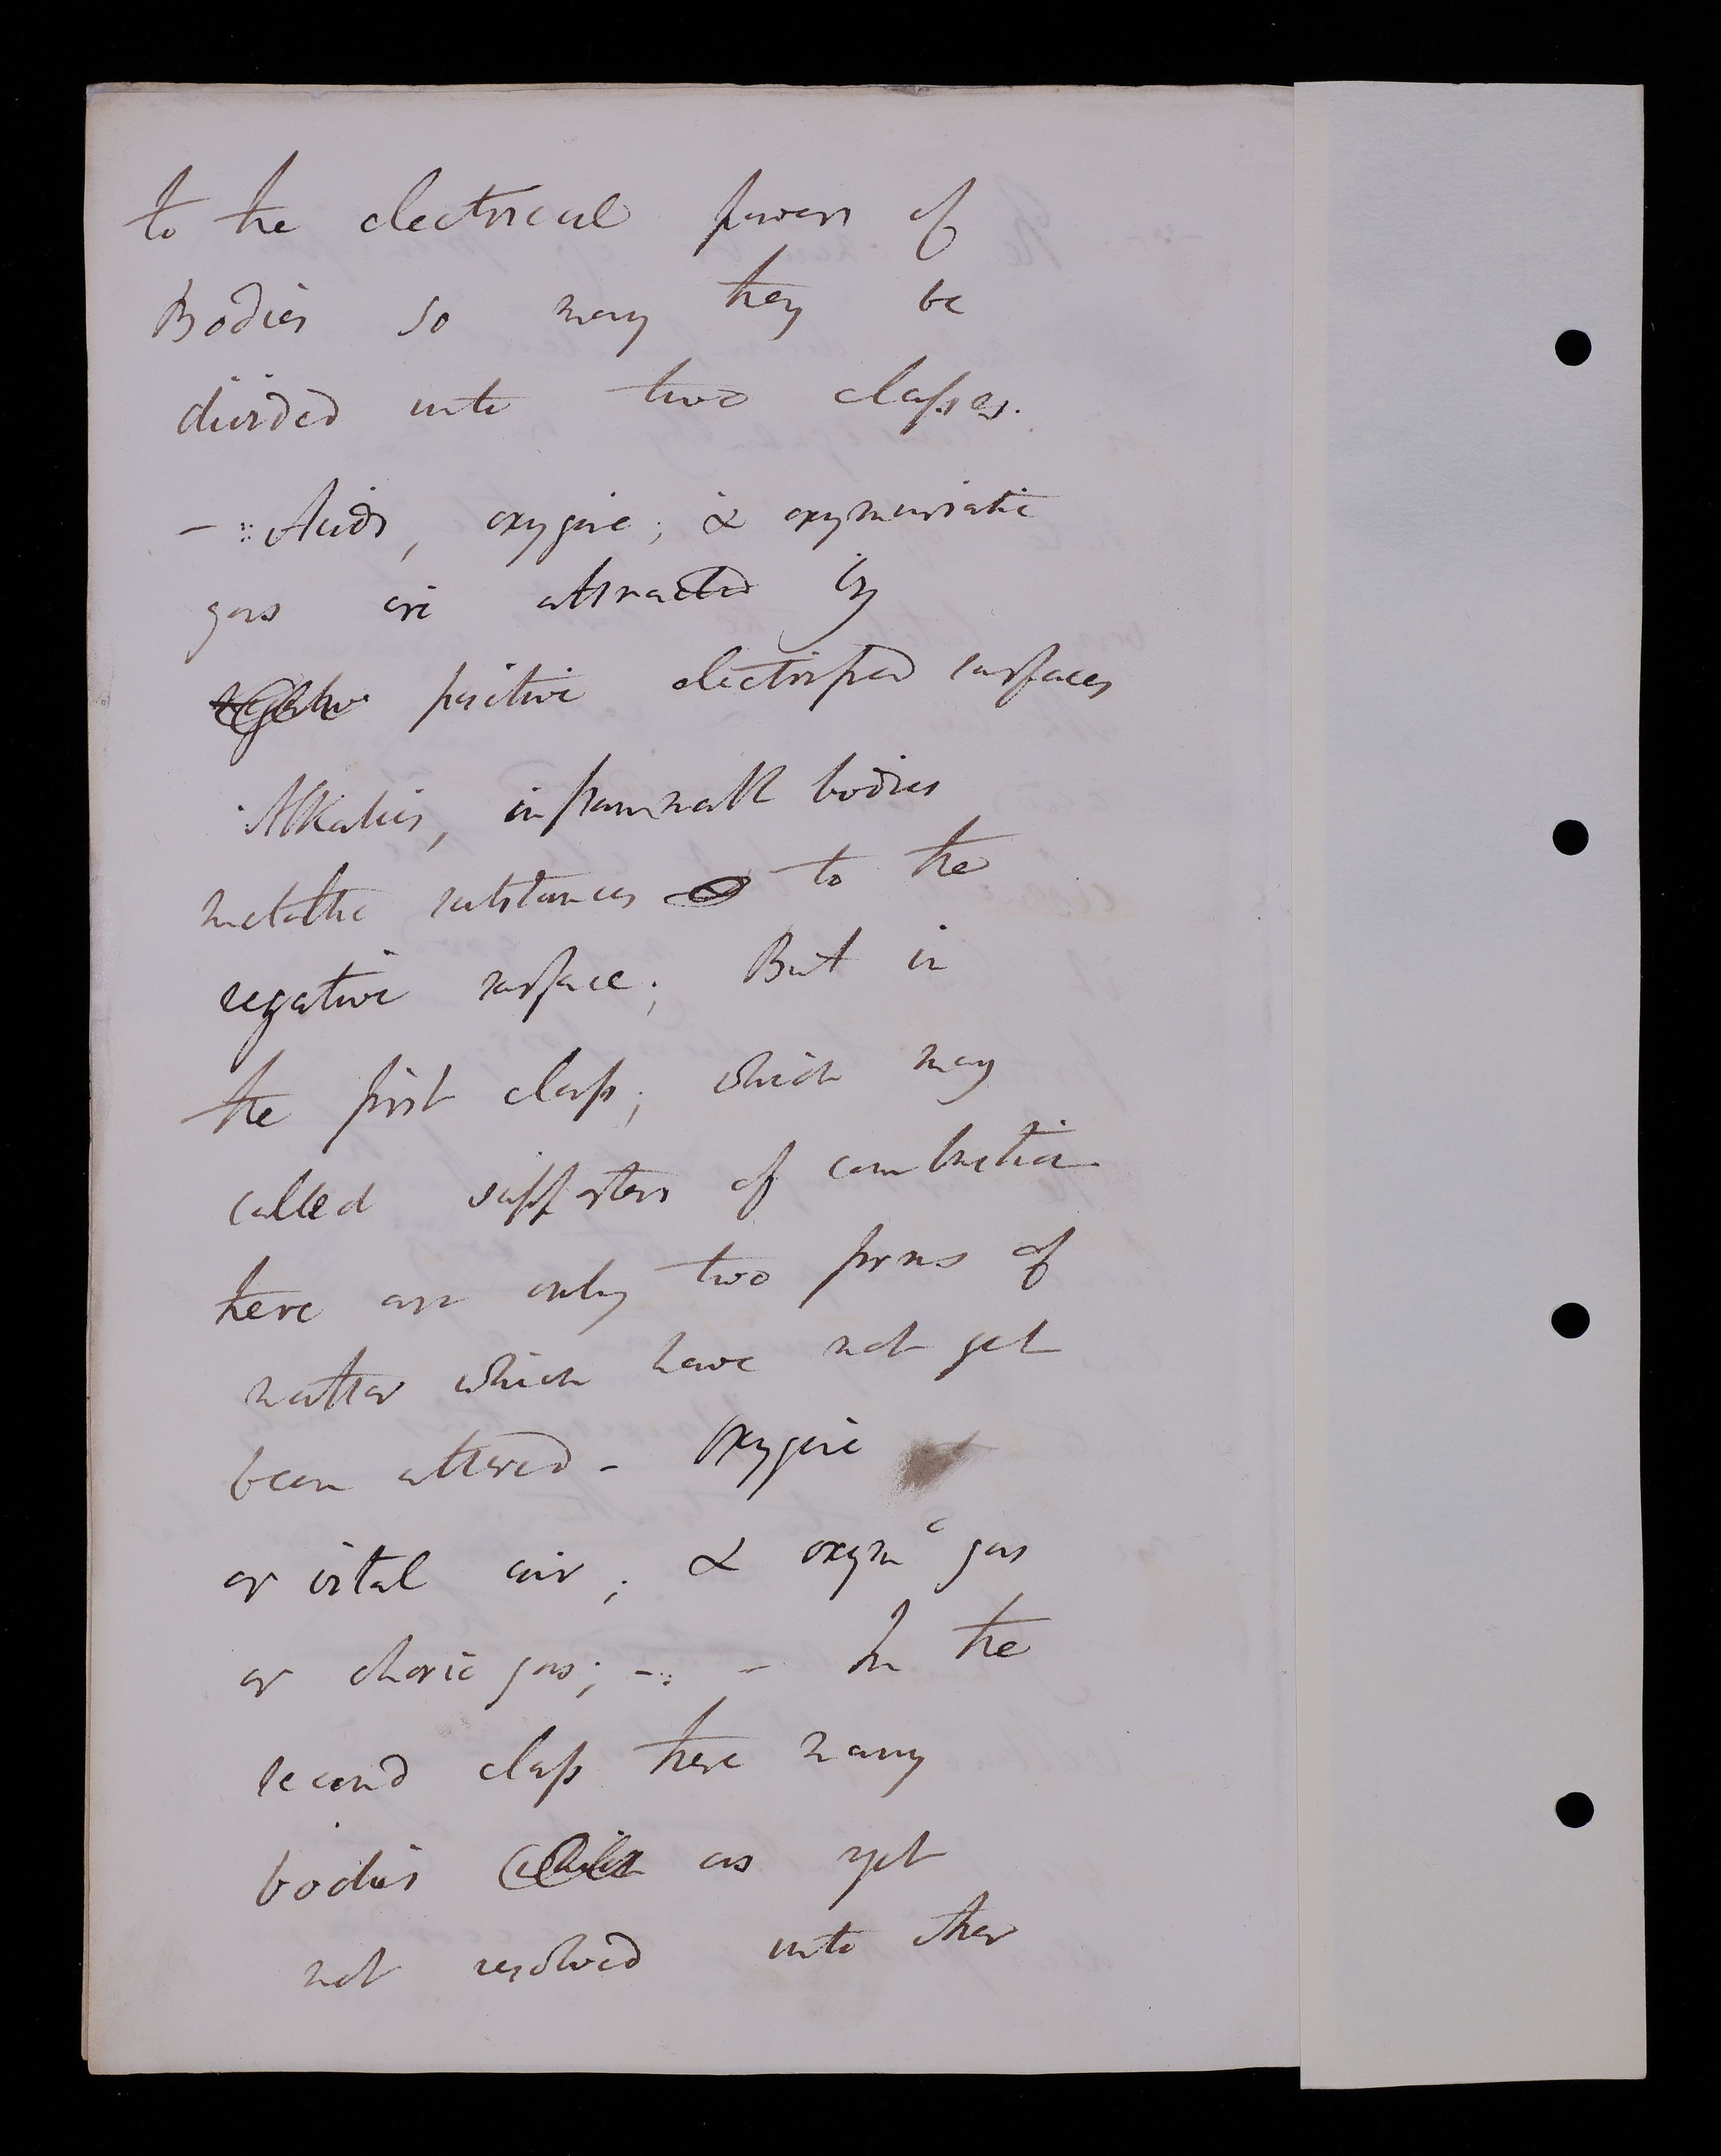 to the electrical powers of
Bodies so may they be
divided into two classes.
- Acids, oxygene; & oxymuriatic
gas are attracted by
negative positive electrified surfaces
Alkalies, inflammable bodies
metallic substances to the
negative surface; But in
the first class; which may
called supporters of combustion
there are only two forms of
matter which have not yet
been altered - Oxygene
or vital air; & oxym^c gas
or chloric gas; - - In the
second class there many
bodies which as yet
not resolved into other